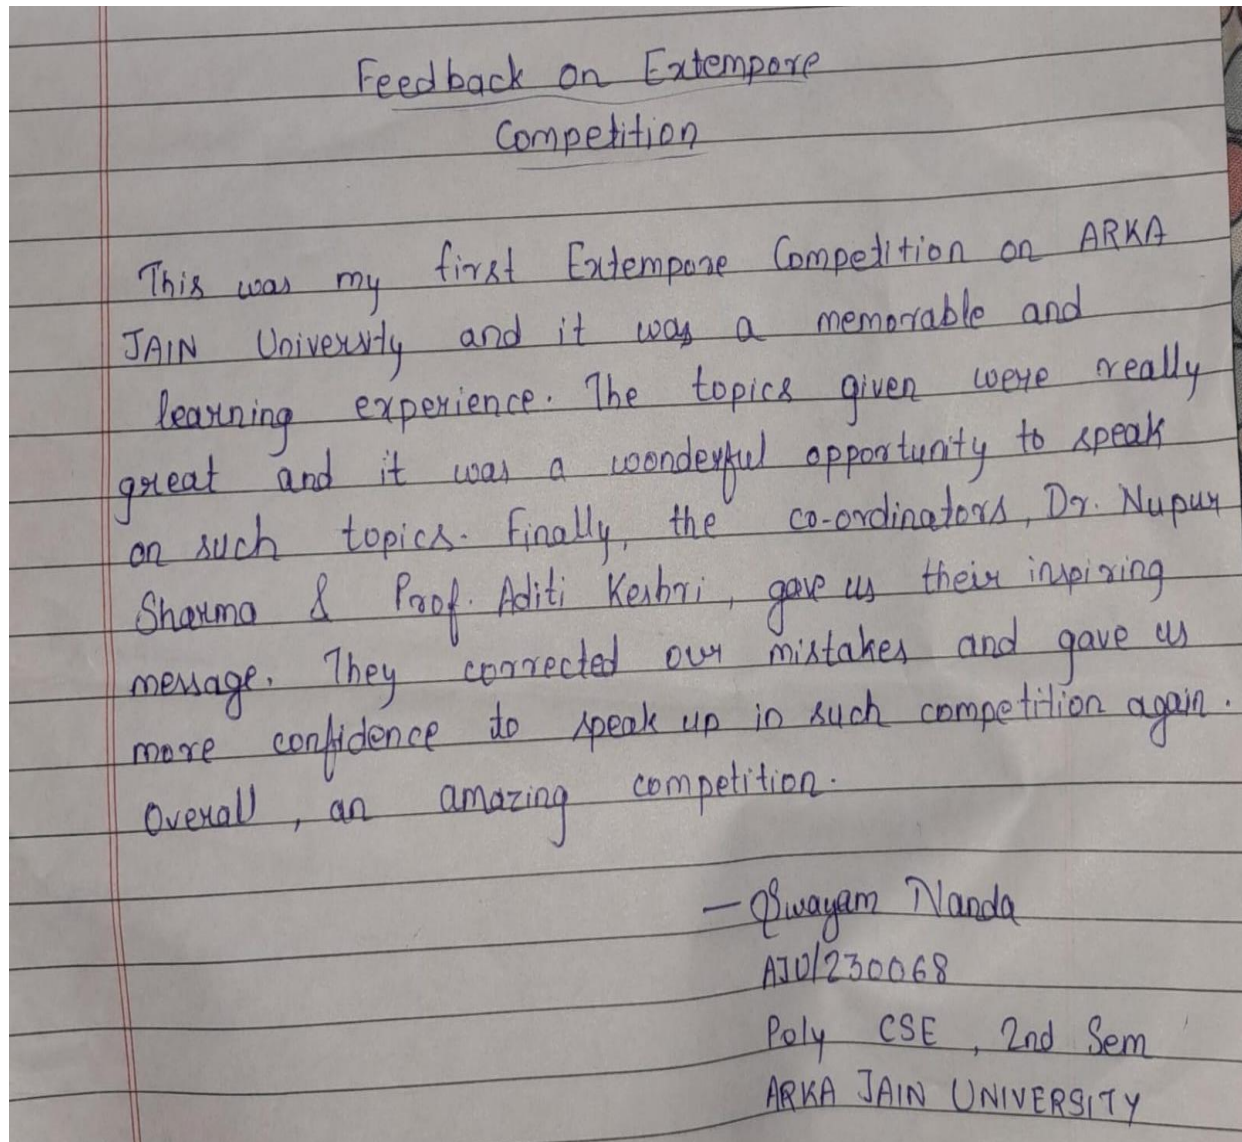 Feedback on Extempore
Competition
This was my first Extempore Competition on ARKA
JAIN University and it was a memorable and
learning experience. The topics given were really
great and it was a woonderful opportunity to speak
on such topics. Finally, the co-ordinators, Dr. Nupur
Sharma & Prof. Aditi Keshri, gave us their inspiring
message. They corrected our mistakes and gave us
more confidence to speak up in such competition again.
Overall, an amazing competition.
— Swayam Nanda
AJU/230068
Poly CSE, 2nd Sem
ARKA JAIN UNIVERSITY